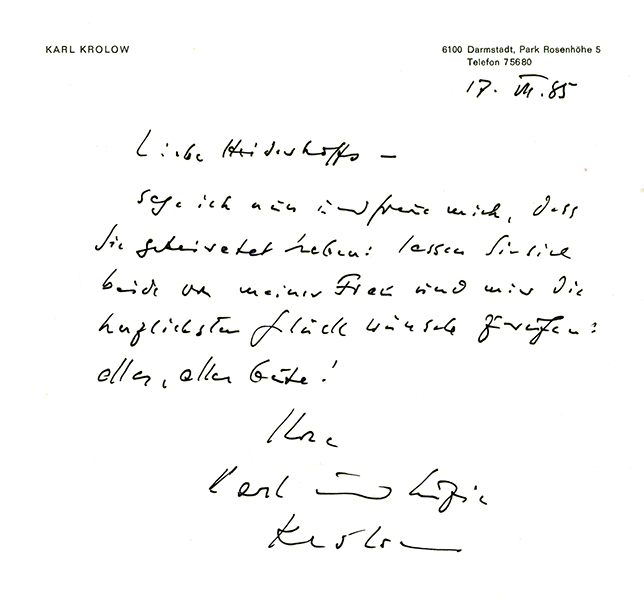 KARL KROLOW
6100 Darmstadt, Park Rosenhöhe 5
Telefon 75680
17. VII. 85
Liebe Heiderhoffs –
sage ich nun und freue mich, dass
Sie geheiratet haben: lassen Sie sich
beide von meiner Frau und mir die
herzlichsten Glückwünsche zurufen:
alles, alles Gute!
Ihre
Karl und Luzie
Krolow